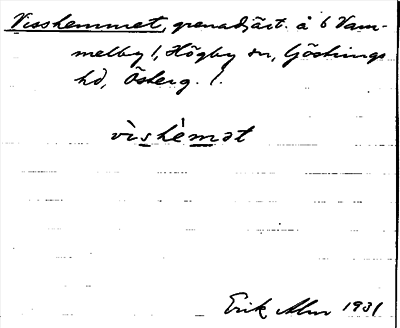 Visshemmet, grenadjärt. å 6 Vam-
melby l, Högby sn, Göstrings
hd, Österg. l.
vìshèmət
Erik Alm 1931